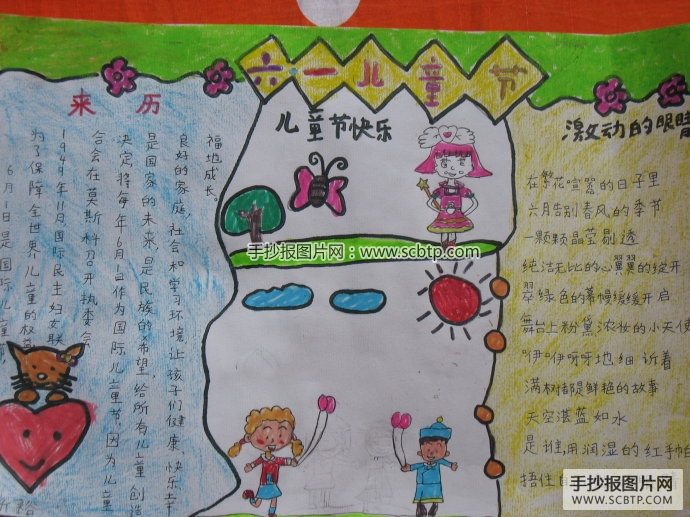 六一儿童节
来历
6月1日是国际儿童
为了保障全世界儿童的权
1949年11月国际民主妇女联
合会在莫斯科召开执委会
决定将每年6月1日作为国际儿童节,因为儿童
是国家的未来,是民族的希望,给所有儿童创造
良好的家庭,社会和学习环境让孩子们健康、快乐幸
福地成长。
儿童节快乐
手抄报图片网:www.scbtp.com
激动的眼睛
在繁花喧嚣的日子里
六月告别春风的季节
一颗颗晶莹剔透
纯洁无比的心翼翼的绽开
翠绿色的幕幔缓缓开启
舞台上粉黛浓妆的小天使
"咿"伊呀呀地细诉着
满树都是鲜艳的故事
天空湛蓝如水
是谁,用润湿的红手帕
捂住
手抄报图片网
WWW.SCBTP.COM